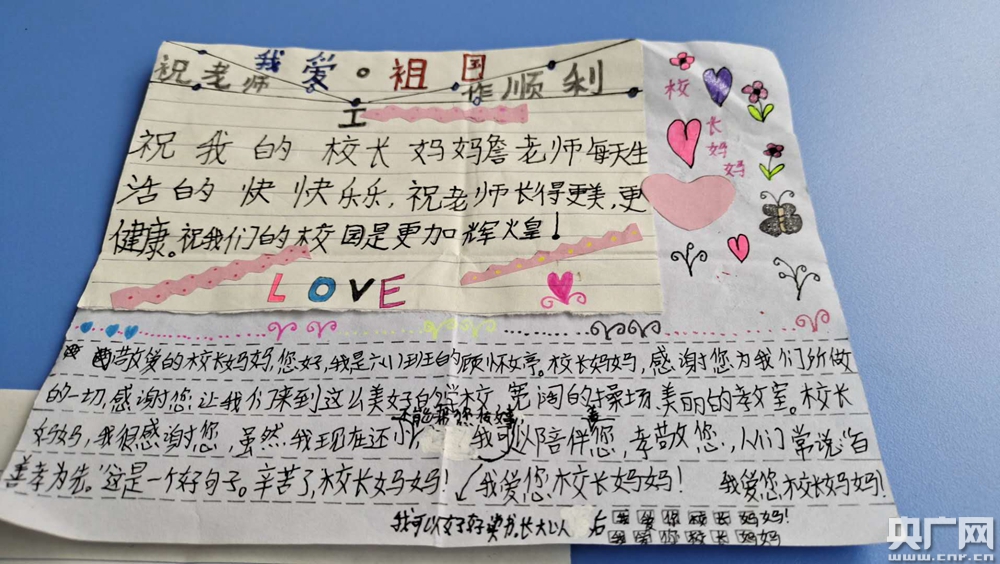 我爱祖国
祝老师工作顺利
祝我的校长妈妈詹老师每天生
活的快快乐乐,祝老师长得更美,更
健康。祝我们的校园是更加辉煌!
LOVE
校长妈妈
尊敬的校长妈妈,您好,我是六(1)班的顾怀婷。校长妈妈,感谢您为我们所做
的一切,感谢您让我们来到这么美好的学校,宽阔的操场,美丽的教室。校长
妈妈,我很感谢您,虽然我现在还小 我可以陪伴您,孝敬您,人们常说:百
善孝为先。"这是一个好句子。辛苦了,校长妈妈! 我爱您,校长妈妈! 我爱您,校长妈妈!
我可以好好读书,长大以 后
我爱你校长妈妈!
我爱你校长妈妈
央广网
www.cnr.cn